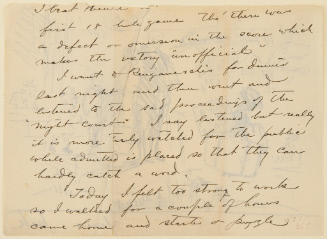 I beat
first 18 hole game tho' there was
a defect or omission in the score which
makes the victory "unofficial"
I went to Renganeschis for dinner
last night and then went and
listened to the sad proceedings of the
"night court" I say listened but really
it is more truly watched for the public
while admitted is placed so that they can
hardly catch a word.
Today I felt too strong to work
so I walked for a couple of hours
came home and started a puzzle